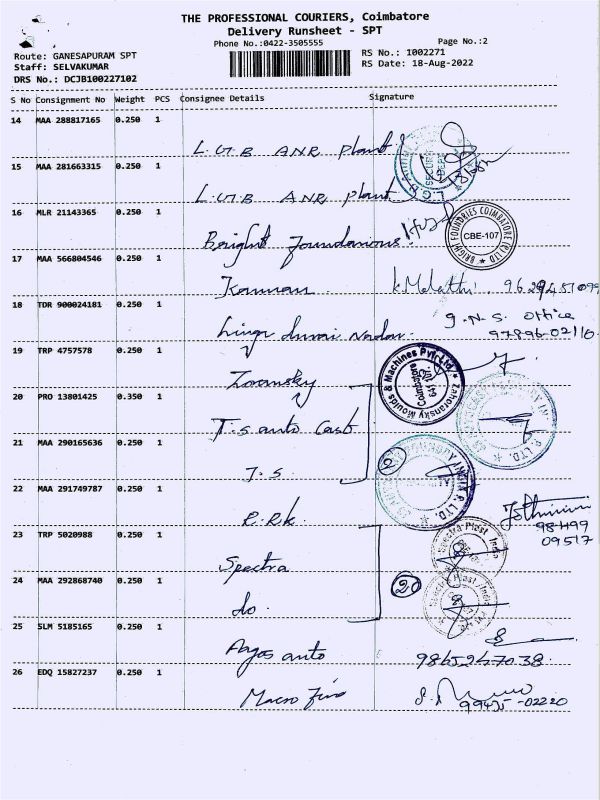 THE PROFESSIONAL COURIERS, Coimbatore
Delivery Runsheet - SPT
Phone No.:0422-3505555 Page No.:2
Route: GANESAPURAM SPT RS No.: 1002271
Staff: SELVAKUMAR RS Date: 18-Aug-2022
DRS No.: DCJB100227102
S No Consignment No Weight PCS Consignee Details Signature
14 MAA 288817165 0.250 1
L.G.B ANR plant
15 MAA 281663315 0.250 1
L.G.B ANR plant
16 MLR 21143365 0.250 1
BRIGHT FOUNDRIES COIMBATORE (P) LTD
CBE-107
17 MAA 566804546 0.250 1
Kannan K Malathi
18 TDR 900024181 0.250 1
G.N.S. Office
97896-02110
19 TRP 4757578 0.250 1
Zahoransky Moulds & Machines Pvt Ltd
Coimbatore
20 PRO 13801425 0.350 1
T.S auto Cast
21 MAA 290165636 0.250 1
T.S. 2
22 MAA 291749787 0.250 1
R.R.K.
98499
09517
23 TRP 5020988 0.250 1
Spectra Spectra Plast India
24 MAA 292868740 0.250 1
do. 2
25 SLM 5185165 0.250 1
Argos auto 9865247038
26 EDQ 15827237 0.250 1
Macro